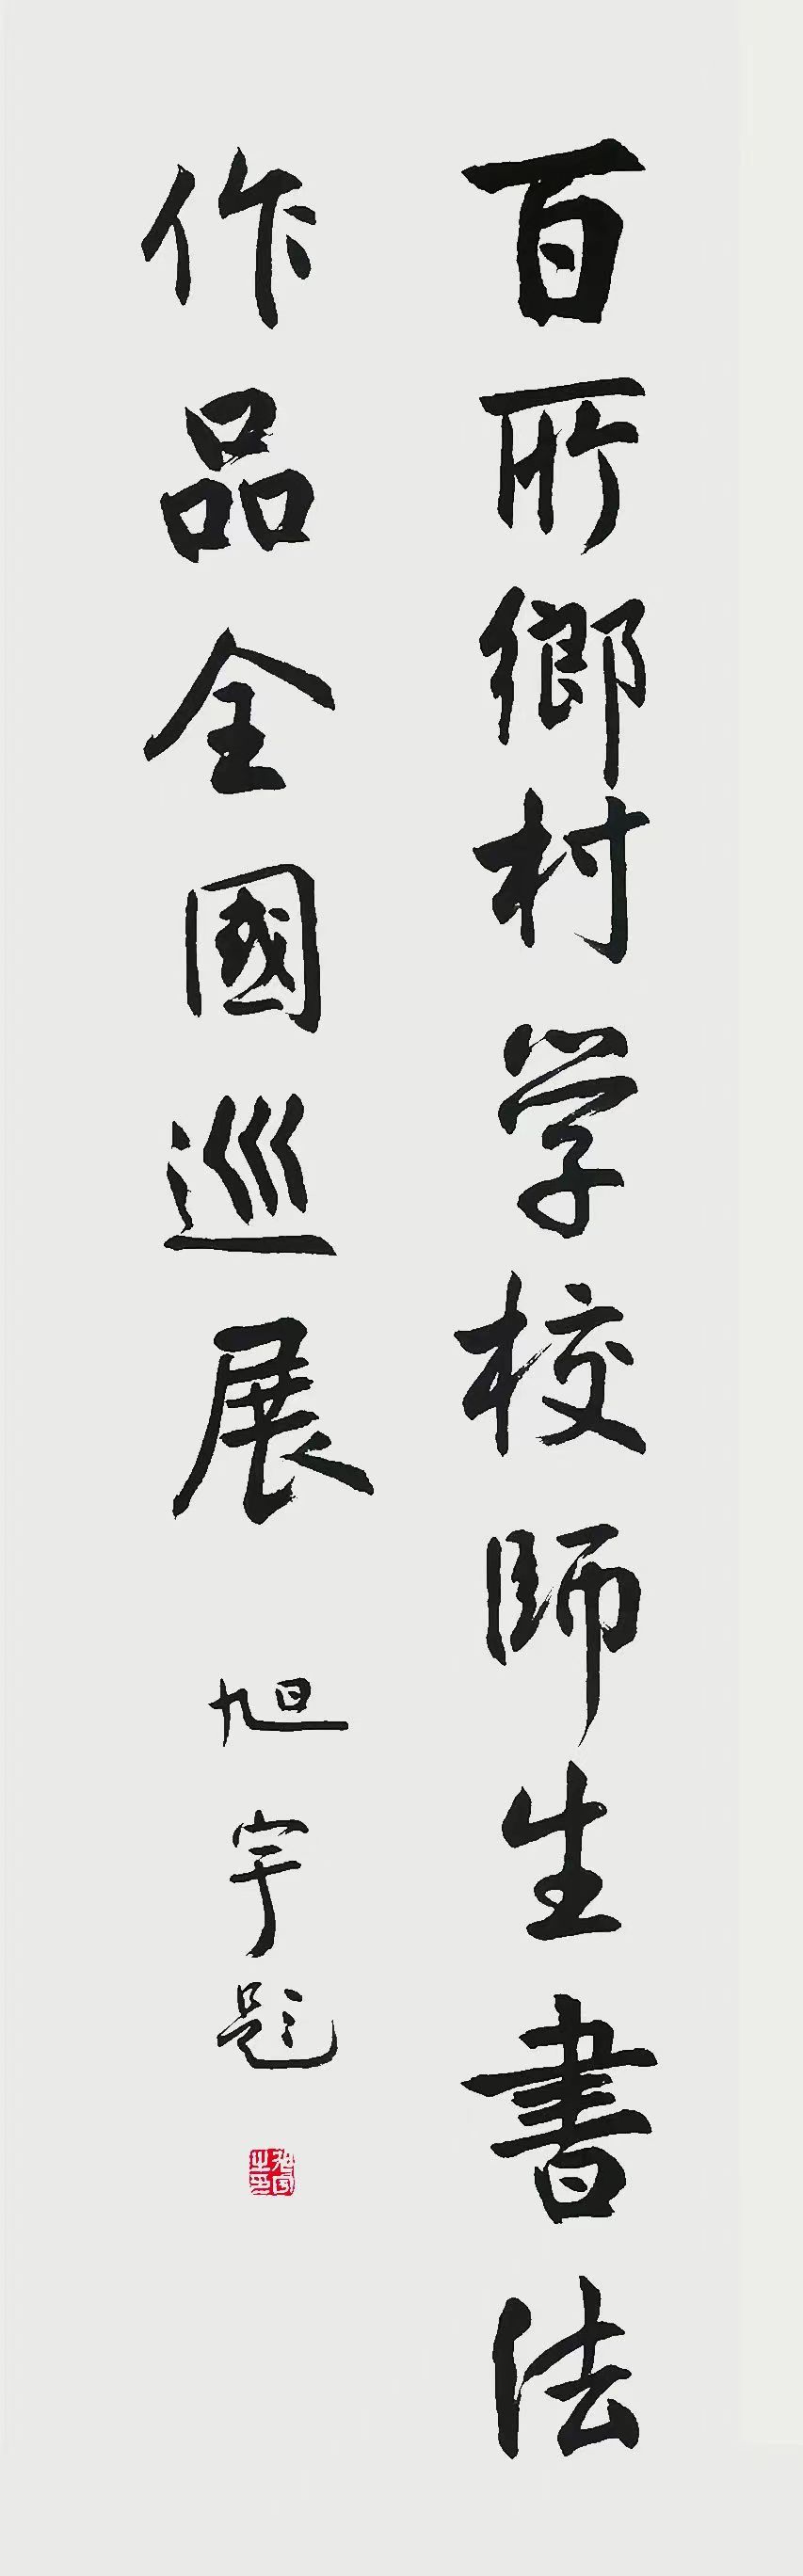 百所鄉村学校師生書法
作品全國巡展
旭宇題
旭宇之印